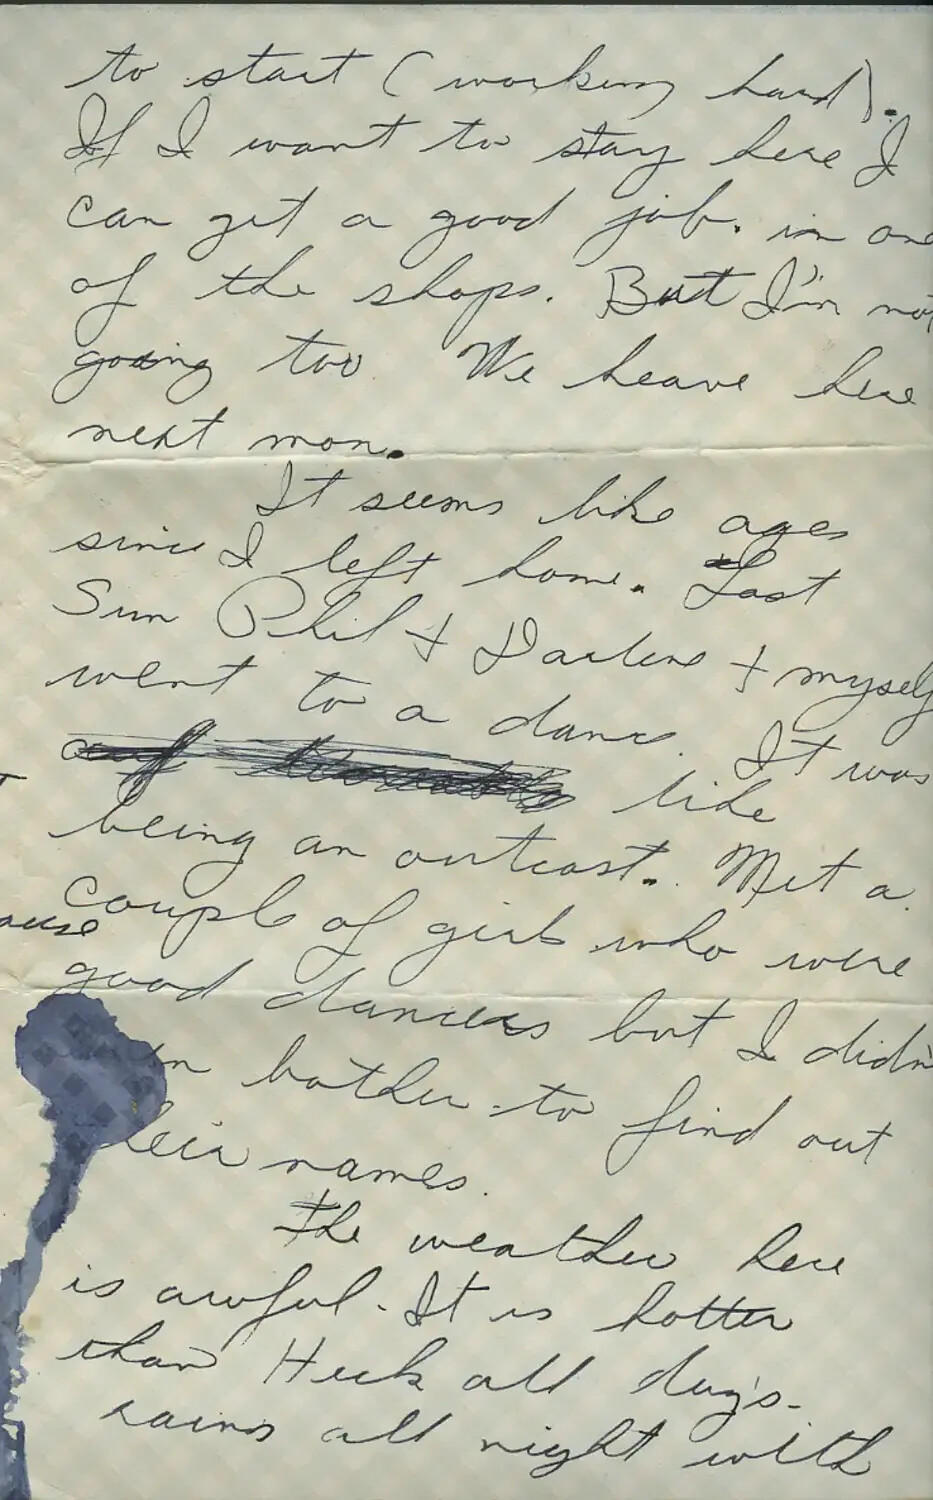 to start (working hard).
If I want to stay here I
can get a good job. in one
of the shops. But I'm not
going too We heave here
next mon.
It seems like ages
since I left home. Last
Sun Phil + Darlene + myself
went to a dance. It was
like
being an outcast. Met a
couple of girls who were
ause
good dancers but I didn't
bother to find out
their names.
The weather here
is awful. It is hotter
than Heck all days.
rains all night with